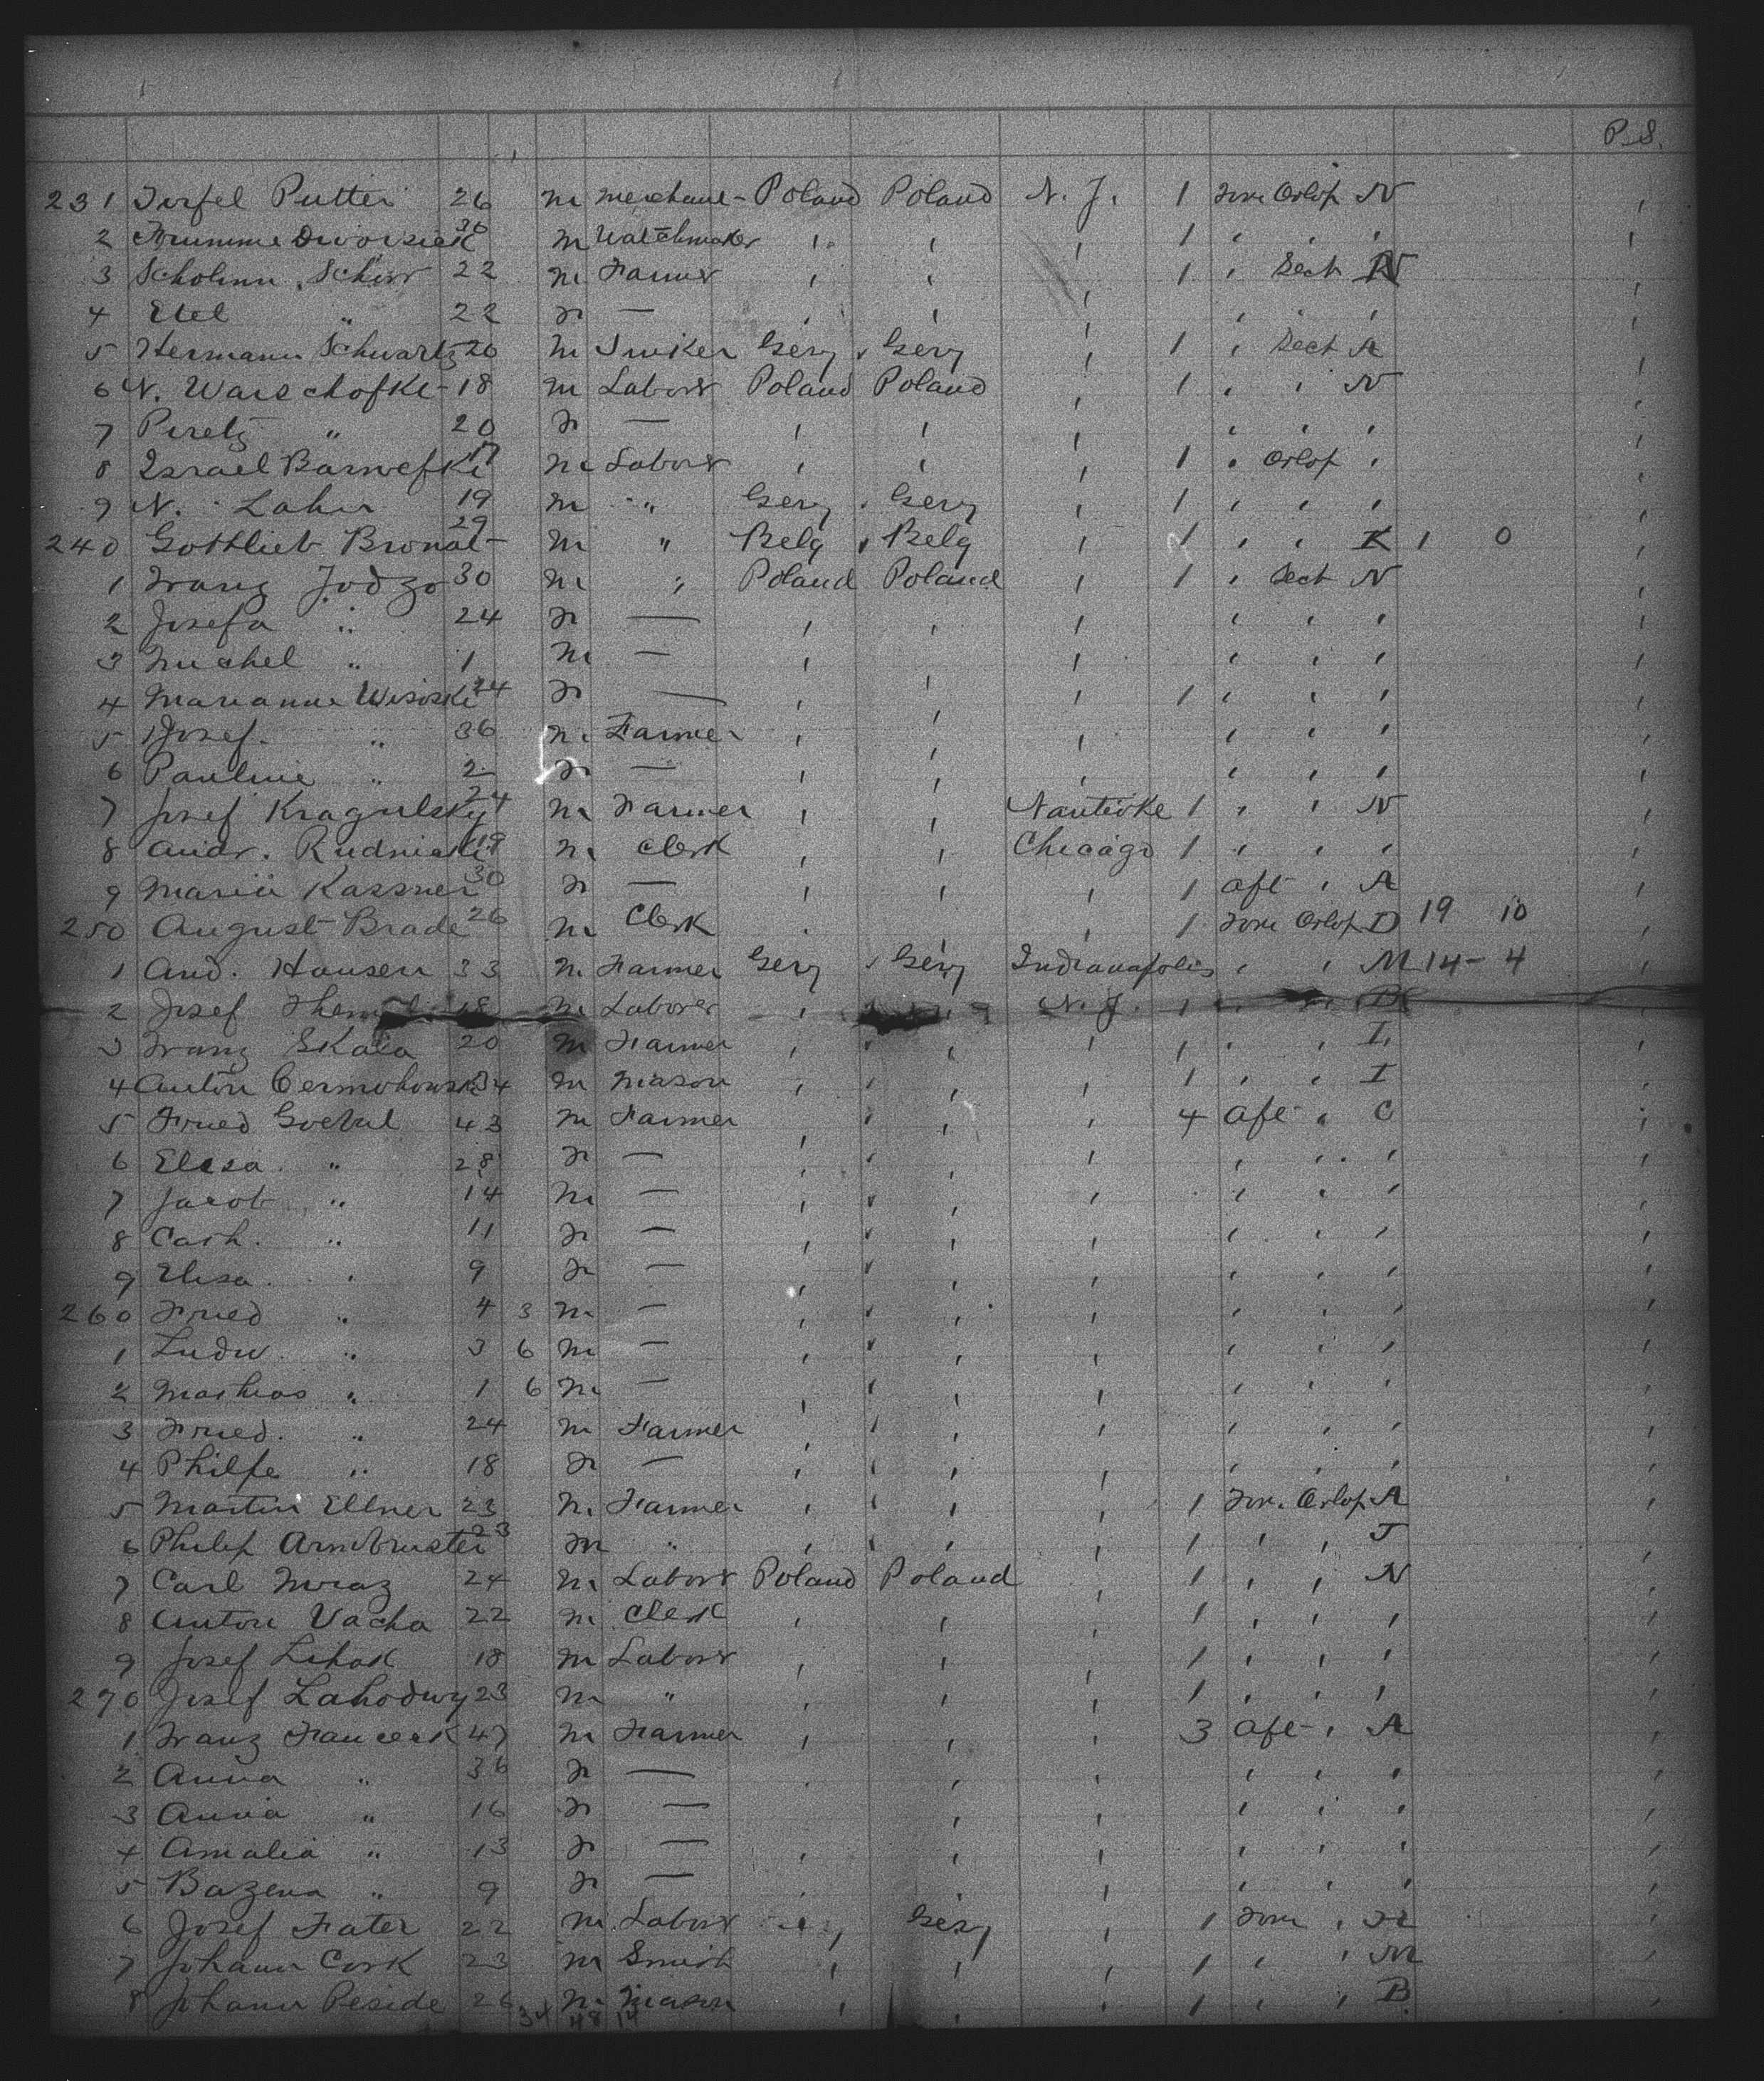 P.S.
231 Putter 26 m Merchant Poland Poland N. J. 1 Fore Orlop N
2 30 m Watchmaker , , , 1 , , ,
3 22 m Farmer , , , 1 , Sect N
4 Etel " 22 f — , , , , , ,
5 Hermann Schwartz 20 m Gery Gery , 1 , Sect A
6 N. Warschofke 18 m Labour Poland Poland , 1 , , N
7 Peretz " 20 f — , , , , , ,
8 Israel 17 m Labour , , , 1 , Orlop ,
9 N. 19 m " Gery Gery , 1 , , ,
240 Gottlieb 29 m " Belg Belg , 1 , , K 1 0
1 Franz Jodzo 30 m " Poland Poland , 1 , Sect N
2 Josefa " 24 f — , , , , , ,
3 Michel " 1 m — , , , , ,
4 Marianne Wisoski 24 f — , , , 1 , , ,
5 Josef " 36 m Farmer , , , , , ,
6 Pauline " 2 f — , , , , , ,
7 Josef Kragulsky 24 m Farmer , , Nanticoke 1 , , N
8 Andr. 19 m Clerk , , Chicago 1 , , ,
9 Maria Kassner 30 f — , , , 1 Aft , A
250 August Brade 26 m Clerk , , , 1 Fore Orlop D 19 10
1 And. Hansen 33 m Farmer Gery Gery Indianapolis , , M 14 - 4
2 Josef 18 m Laborer , , N. J. 1 , ,
3 Franz Skala 20 m Farmer , , , 1 , , I
4 Anton 34 m Mason , , , 1 , , I
5 Fried Goebel 43 m Farmer , , , 4 Aft " C
6 Elisa " 28 f — , , , , , ,
7 Jacob " 14 m — , , , , , ,
8 Cath. " 11 f — , , , , , ,
9 Elisa " 9 f — , , , , , ,
260 Fried " 4 3 m — , , , , , ,
1 Ludw. " 3 6 m — , , , , , ,
2 Mathias " 1 6 m — , , , , , ,
3 Fried. " 24 m Farmer , , , , , ,
4 " 18 f — , , , , , ,
5 Martin Ellner 23 m Farmer , , , 1 For. Orlop A
6 Philip Armbruster 23 m " , , , 1 , , J
7 Carl Mraz 24 m Labour Poland Poland , 1 , , N
8 Anton Vacha 22 m Clerk , , , 1 , , ,
9 Josef 18 m Labour , , , 1 , , ,
270 Josef Lahodny 23 m " , , , 1 , , ,
1 Franz 47 m Farmer , , , 3 Aft , A
2 Anna " 36 f — , , , , , ,
3 Anna " 16 f — , , , , ,
4 Amalia " 13 f — , , , , , ,
5 Bazena " 9 f — , , , , , ,
6 Josef Fater 22 m Labour Gery , 1 Fore ,
7 Johann Cork 23 m Smith , , , 1 , , M
8 Johann Peside 26 m Mason , , , 1 , , B
34 48 14